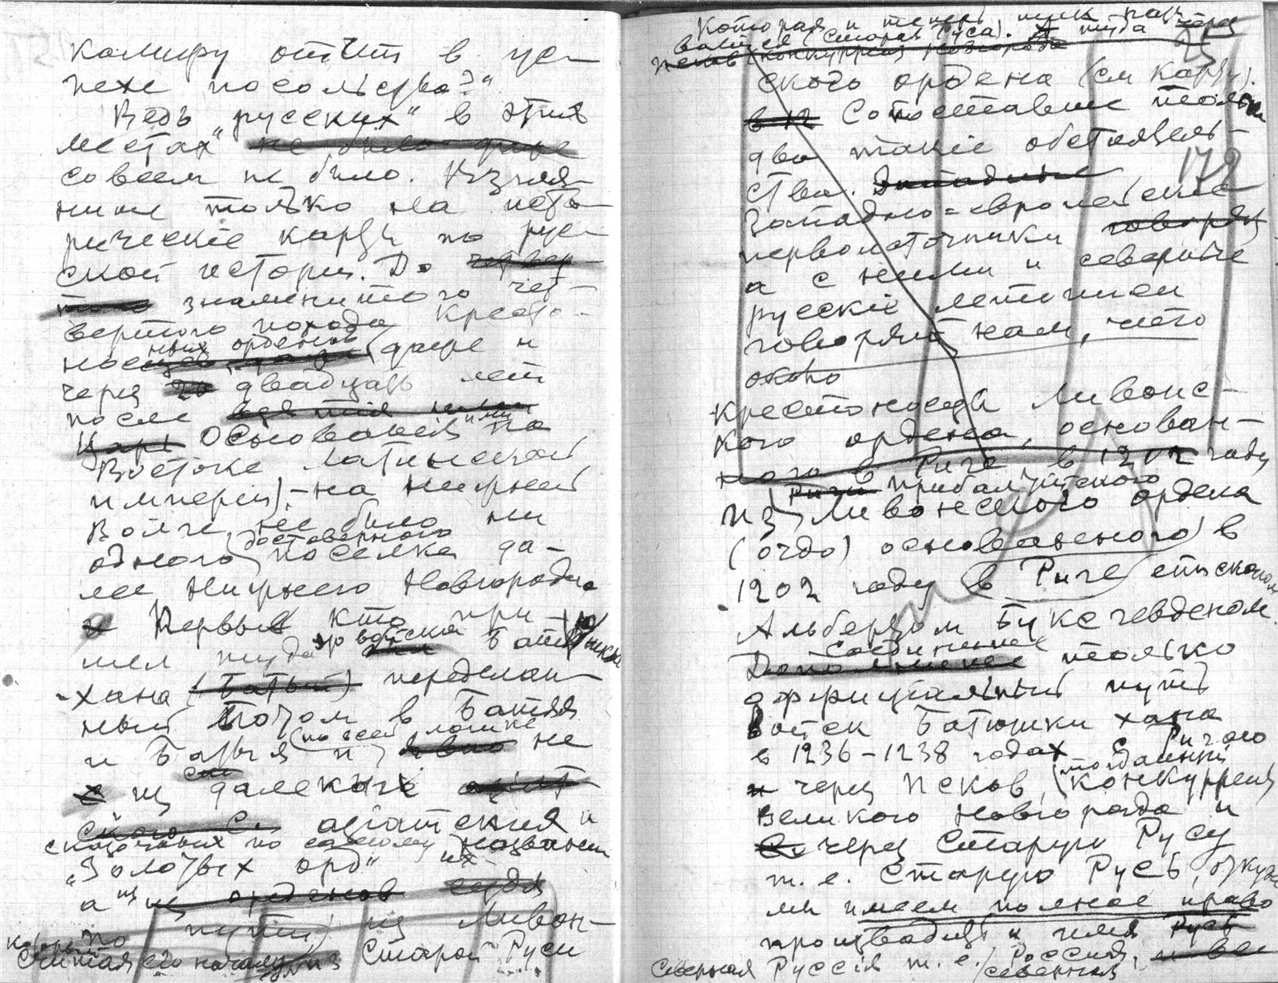 калифу отчет в ус-
пехе посольства?"
Ведь "русских" в этих
местах не было даже
совсем не было. Взгля-
ните только на исто-
рические карты по рус-
ской истории. До четвер-
того знаменитого чет-
вертого похода кресто-
носцев ных орденов даже и
через 20 двадцать лет
после взятия ими
Цар Основания ими на
Востоке Латинской
империи), - на нижней
Волге не было ни
одного достоверного поселка да-
лее Нижнего Новгорода
Первые кто при-
шел туда это войска Батюшки
-хана (Батый) переделан-
ный потом в Батыя
и Батыя (по всей логике не
из далеких
ского азиатских и
сказочных по самому названию
"Золотых орд"
а из орденов
по пути) из Ливон-
считая его начало из Старой Руси
Которая и теперь так назы-
вается (Старая Руса). и туда через
Псков (конкуррент Новгорода
25
ского ордена (см карту).
в 12 Сопоставьте только
два такие обстоятель-
172
ства. Западные
Западно-европейские
первоисточники говорят
а с ними и северные
русские летописи
говорят нам, что
около
крестоносцы Ливонс-
кого ордена, основан-
ного в Риге в 1202 году
Риги прибалтийского
из Ливонского ордена
(очдо) основанного в
1202 году в Риге епископом
Альбертом Буксгевденом.
Дополнение Соединение только
официальный путь
войск Батюшки хана
в 1236-1238 годах с Ригою
и через Псков, (тогдашний конкуррент
Великого Новгорода и
через Старую Русу
т. е. Старую Русь, откуда
мы имеем полное право
производить и имя Русь
Северная Руссия т. е. Россия, северная